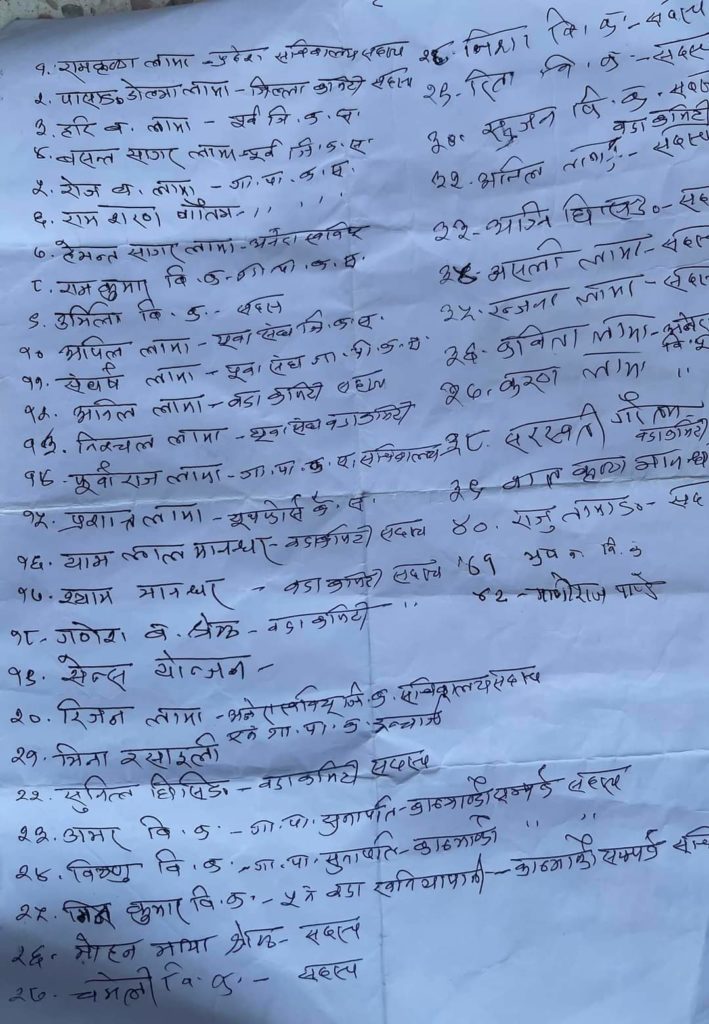 १. रामकृष्ण लामा - प्रदेश सचिवालय सदस्य
२. पासाङ डोल्मा लामा - जिल्ला कमिटी सदस्य
३. हरि व. लामा - पूर्व जि. क. स.
४. बसन्त सागर लामा - पूर्व जि. क. स.
५. रोज व. लामा - गा. पा. क. स.
६. राम शरण गौतम - " " " "
७. हेमन्त सागर लामा - अनेरास्ववियु
८. राम कुमार वि. क. - गा. पा. क. स.
९. उर्मिला वि. क. - सदस्य
१० अपिल लामा - युवा संघ जि. क. स.
११. संघर्ष लामा - युवा संघ गा. पा. क. स
१२. अनिल लामा - वडा कमिटी सदस्य
१३. निश्चल लामा - युवा संघ वडा कमिटी
१४. पूर्वा राज लामा - गा. पा. क. स. सचिवालय
१५. प्रशान्त लामा - यूथफोर्स के. स
१६. याम लाल मानन्धर - वडा कमिटी सदस्य
१७. श्याम मानन्धर - वडा कमिटी सदस्य
१८. गणेश व. श्रेष्ठ - वडा कमिटी "
१९. सेन्स योन्जन -
२०. रिजन लामा - अनेरास्ववियु जि. क. सचिवालय सदस्य
एवं गा. पा. क. इन्चार्ज
२१. मिना रसाइली
२२. सुनिल घिसिङ - वडा कमिटी सदस्य
२३. अमर वि. क. - गा. पा. सुनापति - काठमाण्डौ सम्पर्क सदस्य
२४. विष्णु वि. क. - गा. पा. सुनापति - काठमाण्डौ " "
२५. कुमार वि. क. - ५ नं वडा - काठमाण्डौ सम्पर्क
२६. मोहन माया श्रेष्ठ - सदस्य
२७. चमेली वि. क. - सदस्य
२८. निशा वि. क. - सदस्य
२९. रिता वि. क. - सदस्य
३०. सुजन वि. क. सदस्य
वडा कमिटी
३२. अनिल - सदस्य
३३. घिसिङ - सद
३४. असली लामा - सद
३५. रन्जना लामा - सद
३६. कविता लामा - अनेरा
वि. यु
३७. करुणा लामा "
३८. सरस्वती गौतम -
वडा कमिटी
३९. बाल कृष्ण मानन्ध
४०. राजु तामाङ - सद
४१ वि. क
४२ - मणीराज पाण्डे